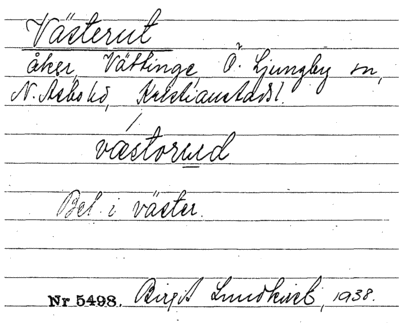 Västerut
åker, Vättinge, Ö. Ljungby sn,
N. Åsbo hd, Kristianstads l.
västorud
Bel. i väster.
Nr 5498. Birgit Lundkvist, 1938.